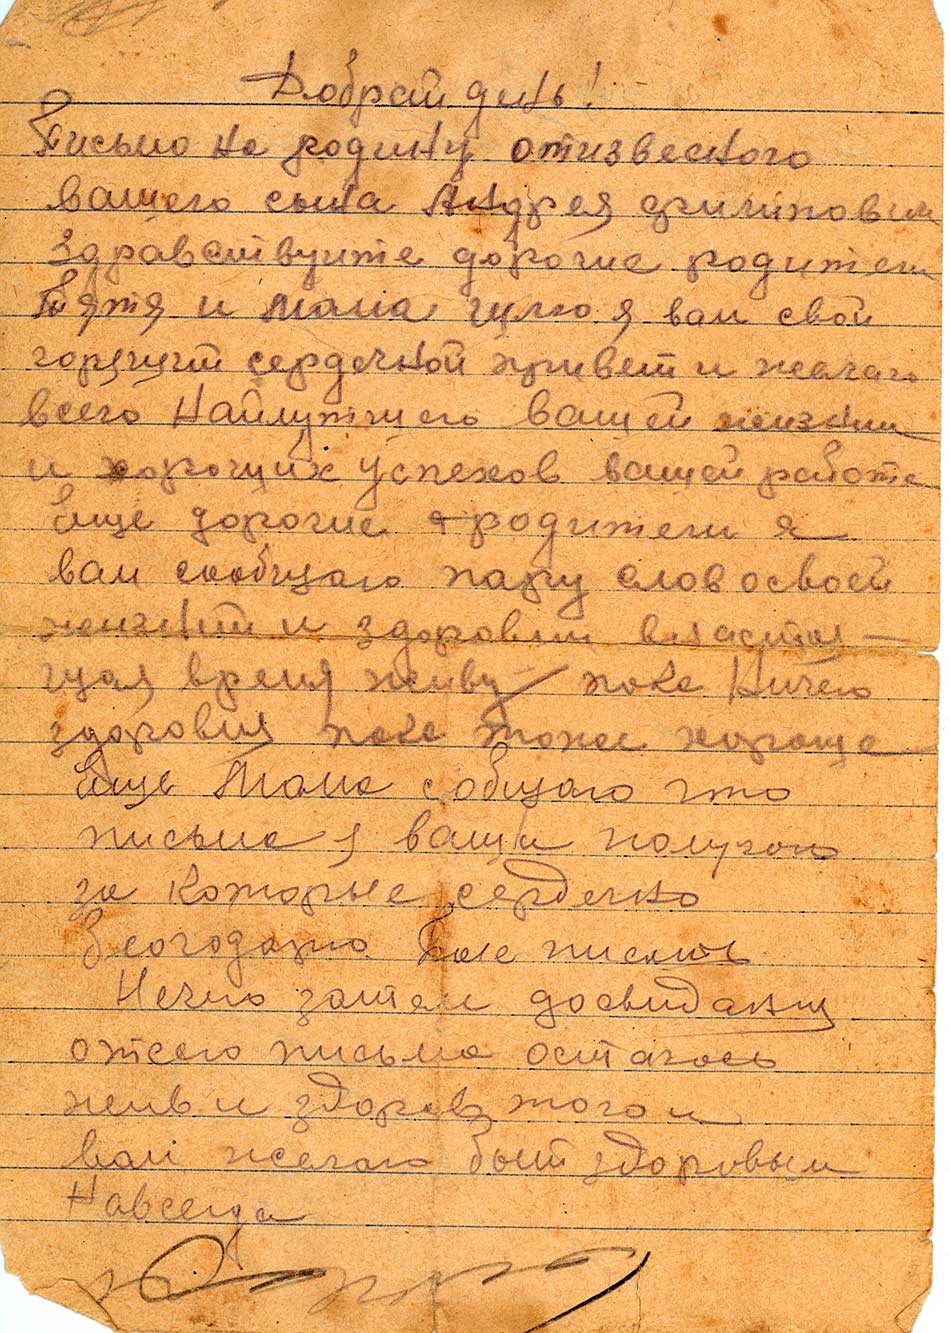 Добрай день!
Письмо на родину отизвесного
вашего сына Андрея
Здравствуите дорогие родители
Тятя и мама шлю я вам свой
горячий сердечной привет и желаю
всего Найлутшего вашей жизнии
и хороших успехов вашей работе
Еще дорогие родители я
вам сообщаю пару слов освоей
жизний и здоровии внастоя-
щая время живу пока Ничего
здоровия пока тоже хороше
Еще Мама собщаю что
письма я ваши получаю
за которые сердечно
благодарю Боле писать
Нечго затем досвидания
отсего письма остаюсь
жив и здоров того и
вам желаю быт здоровым
Навсегда